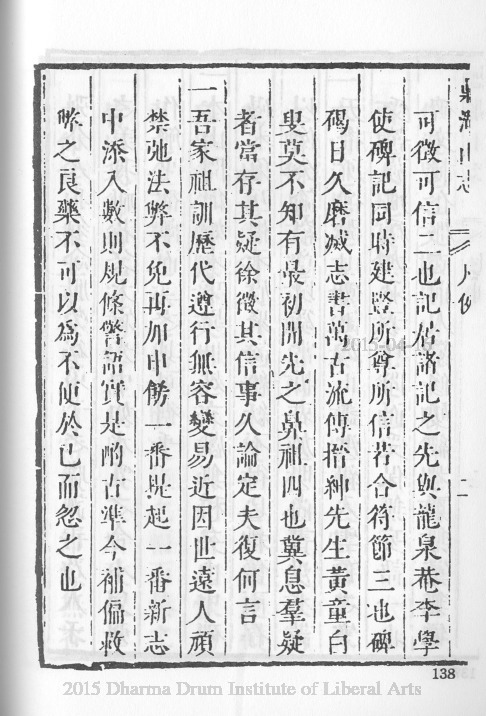 鼎湖山志
凡例
二
可徵可信二也記居諸記之先與龍泉菴李學
使碑記同時建豎所尊所信若合符節三也碑
碣日久磨滅志書萬古流傳搢紳先生黃童白
叟莫不知有最初開先之鼻祖四也冀息羣疑
者當存其疑徐徵其信事久論定夫復何言
一吾家祖訓歷代遵行無容變易近因世遠人頑
禁弛法弊不免再加申飭一番提起一番新志
中添入數則規條警語實是酌古準今補偏救
敝之良藥不可以為不便於己而忽之也
138
2015 Dharma Drum Institute of Liberal Arts